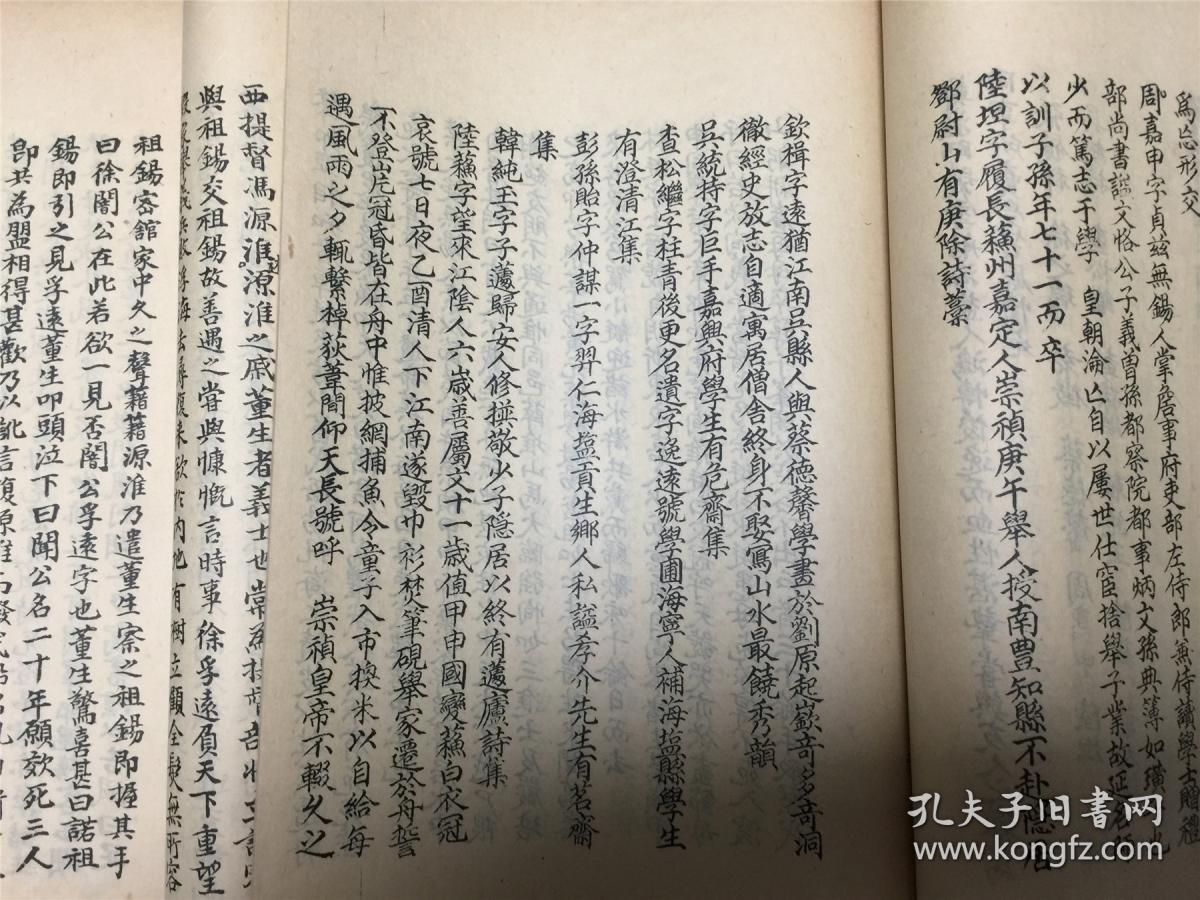 為忘形交
周嘉申字貞玆無錫人掌詹事府吏部左侍郎兼侍讀學士贈禮
部尚書諡文恪公子義曾孫都察院都事炳文孫典簿如
少而篤志于學　皇朝淪亾自以屢世仕宦捨舉子業故
以訓子孫年七十一而卒
陸坦字履長蘓州嘉定人崇禎庚午舉人授南豐知縣不赴隐居
鄧尉山有庚除詩藁
欽楫字遠猶江南吕縣人與蔡德馨學畫於劉原起嶔奇多奇洞
徹經史放志自適寓居僧舍終身不娶寫山水最饒秀韻
吕統持字巨手嘉興府學生有危齋集
查松繼字柱青後更名遺字逸遠號學圃海寧人補海塩縣學生
有澄清江集
彭孫貽字仲謀一字羿仁海塩貢生鄉人私諡孝介先生有茗齋
集
韓純玉字子蘧歸安人修撰敬少子隱居以終有蘧廬詩集
陸蘓字望來江陰人六歲善屬文十一歲值甲申國變蘓白衣冠
哀號七日夜乙酉清人下江南遂毀巾衫焚筆硯舉家遷於舟誓
不登岸冠昏皆在舟中惟披網捕魚令童子入市換米以自給每
遇風雨之夕輒繫棹荻葦間仰天長號呼　崇禎皇帝不輟久之
西提督馮源淮源淮之戚董生者義士也常為提督
與祖錫交祖錫故善遇之嘗與慷慨言時事徐孚遠負天下重望
祖錫密館家中久之聲藉藉源淮乃遣董生察之祖錫即握其手
曰徐闇公在此若欲一見否闇公孚遠字也董生驚喜甚曰諾祖
錫即引之見孚遠董生叩頭泣下曰聞公名二十年願效死三人
即共為盟相得甚歡乃以訛言復源淮
孔夫子旧书网
www.kongfz.com